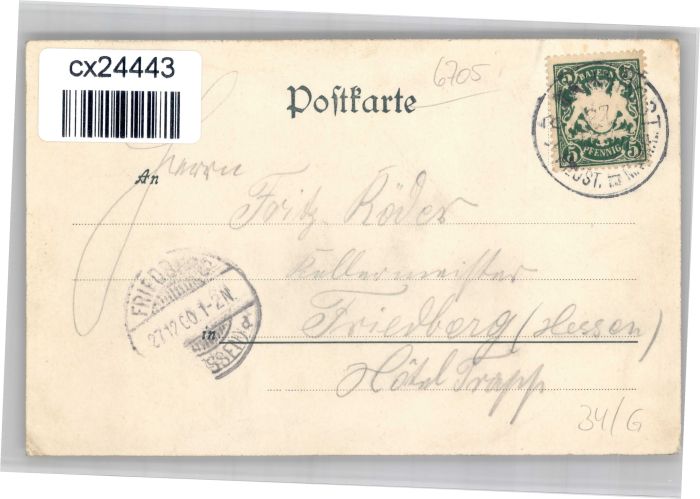 cx24443
6705
Postkarte
5 BAYERN 5
5 PFENNIG 5
An
Herrn
Fritz Röder
Kellermeister
in Friedberg (Hessen)
Hôtel Trapp
FRIEDBERG
27 12 00 1-2N.
HESSEN
34/G